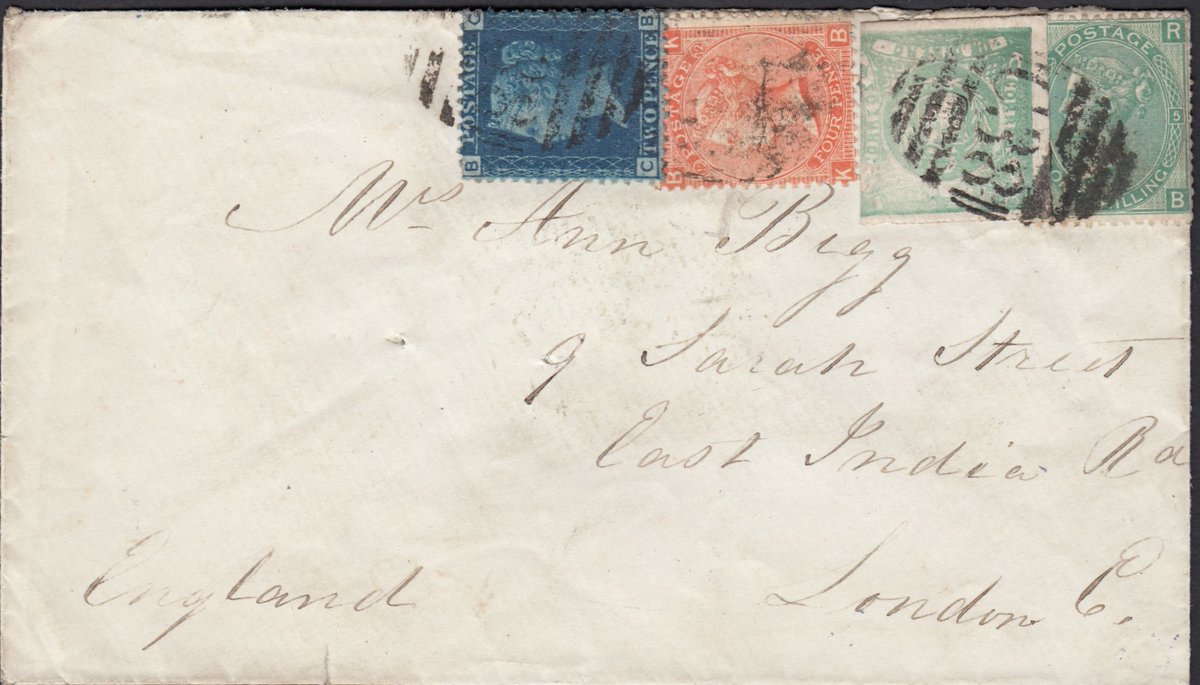 POSTAGE
TWO PENCE
C B
B C
POSTAGE
FOUR PENCE
K B
B K
POSTAGE
R
5
B
C38
Mrs Ann Bigg
9 Sarah Street
East India Rd
London E.
England